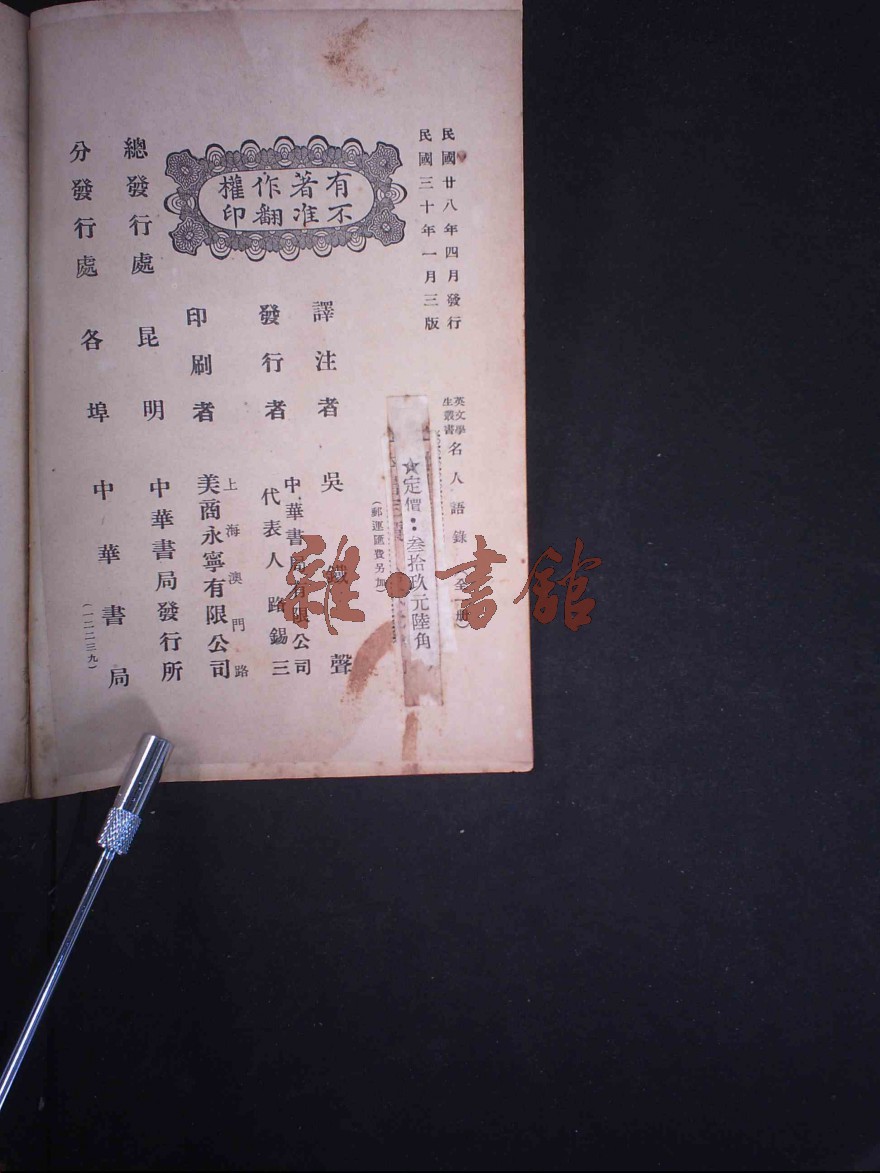 民國廿八年四月發行
民國三十年一月三版
英文學
生叢書
名人語錄 全一册
★定價：叁拾玖元陸角
(郵運匯費另加)
有著作權
不准翻印
譯注者 吳鐵聲
發行者 中華書局有限公司
代表人 路錫三
印刷者 上海澳門路
美商永寧有限公司
總發行處 昆明 中華書局發行所
分發行處 各埠 中華書局
(一二二三九)
雜·書館